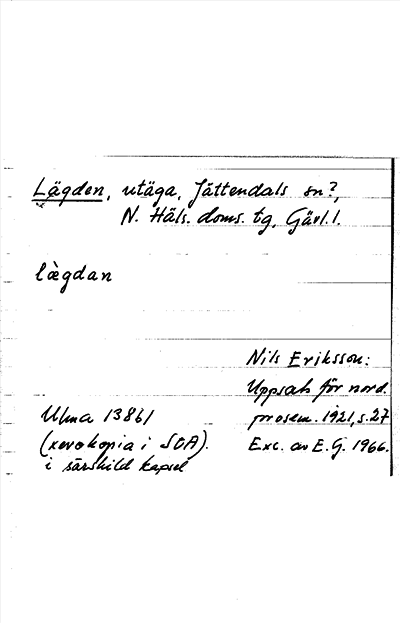 Lägden, utäga, Jättendals sn?,
N. Häls. doms. tg, Gävl. l.
lägdan
Nils Eriksson:
Uppsats för nord.
prosem. 1921, s. 27
Exc. av E. G. 1966.
Ulma 13861
(xerokopia i SOA).
i särskild kapsel